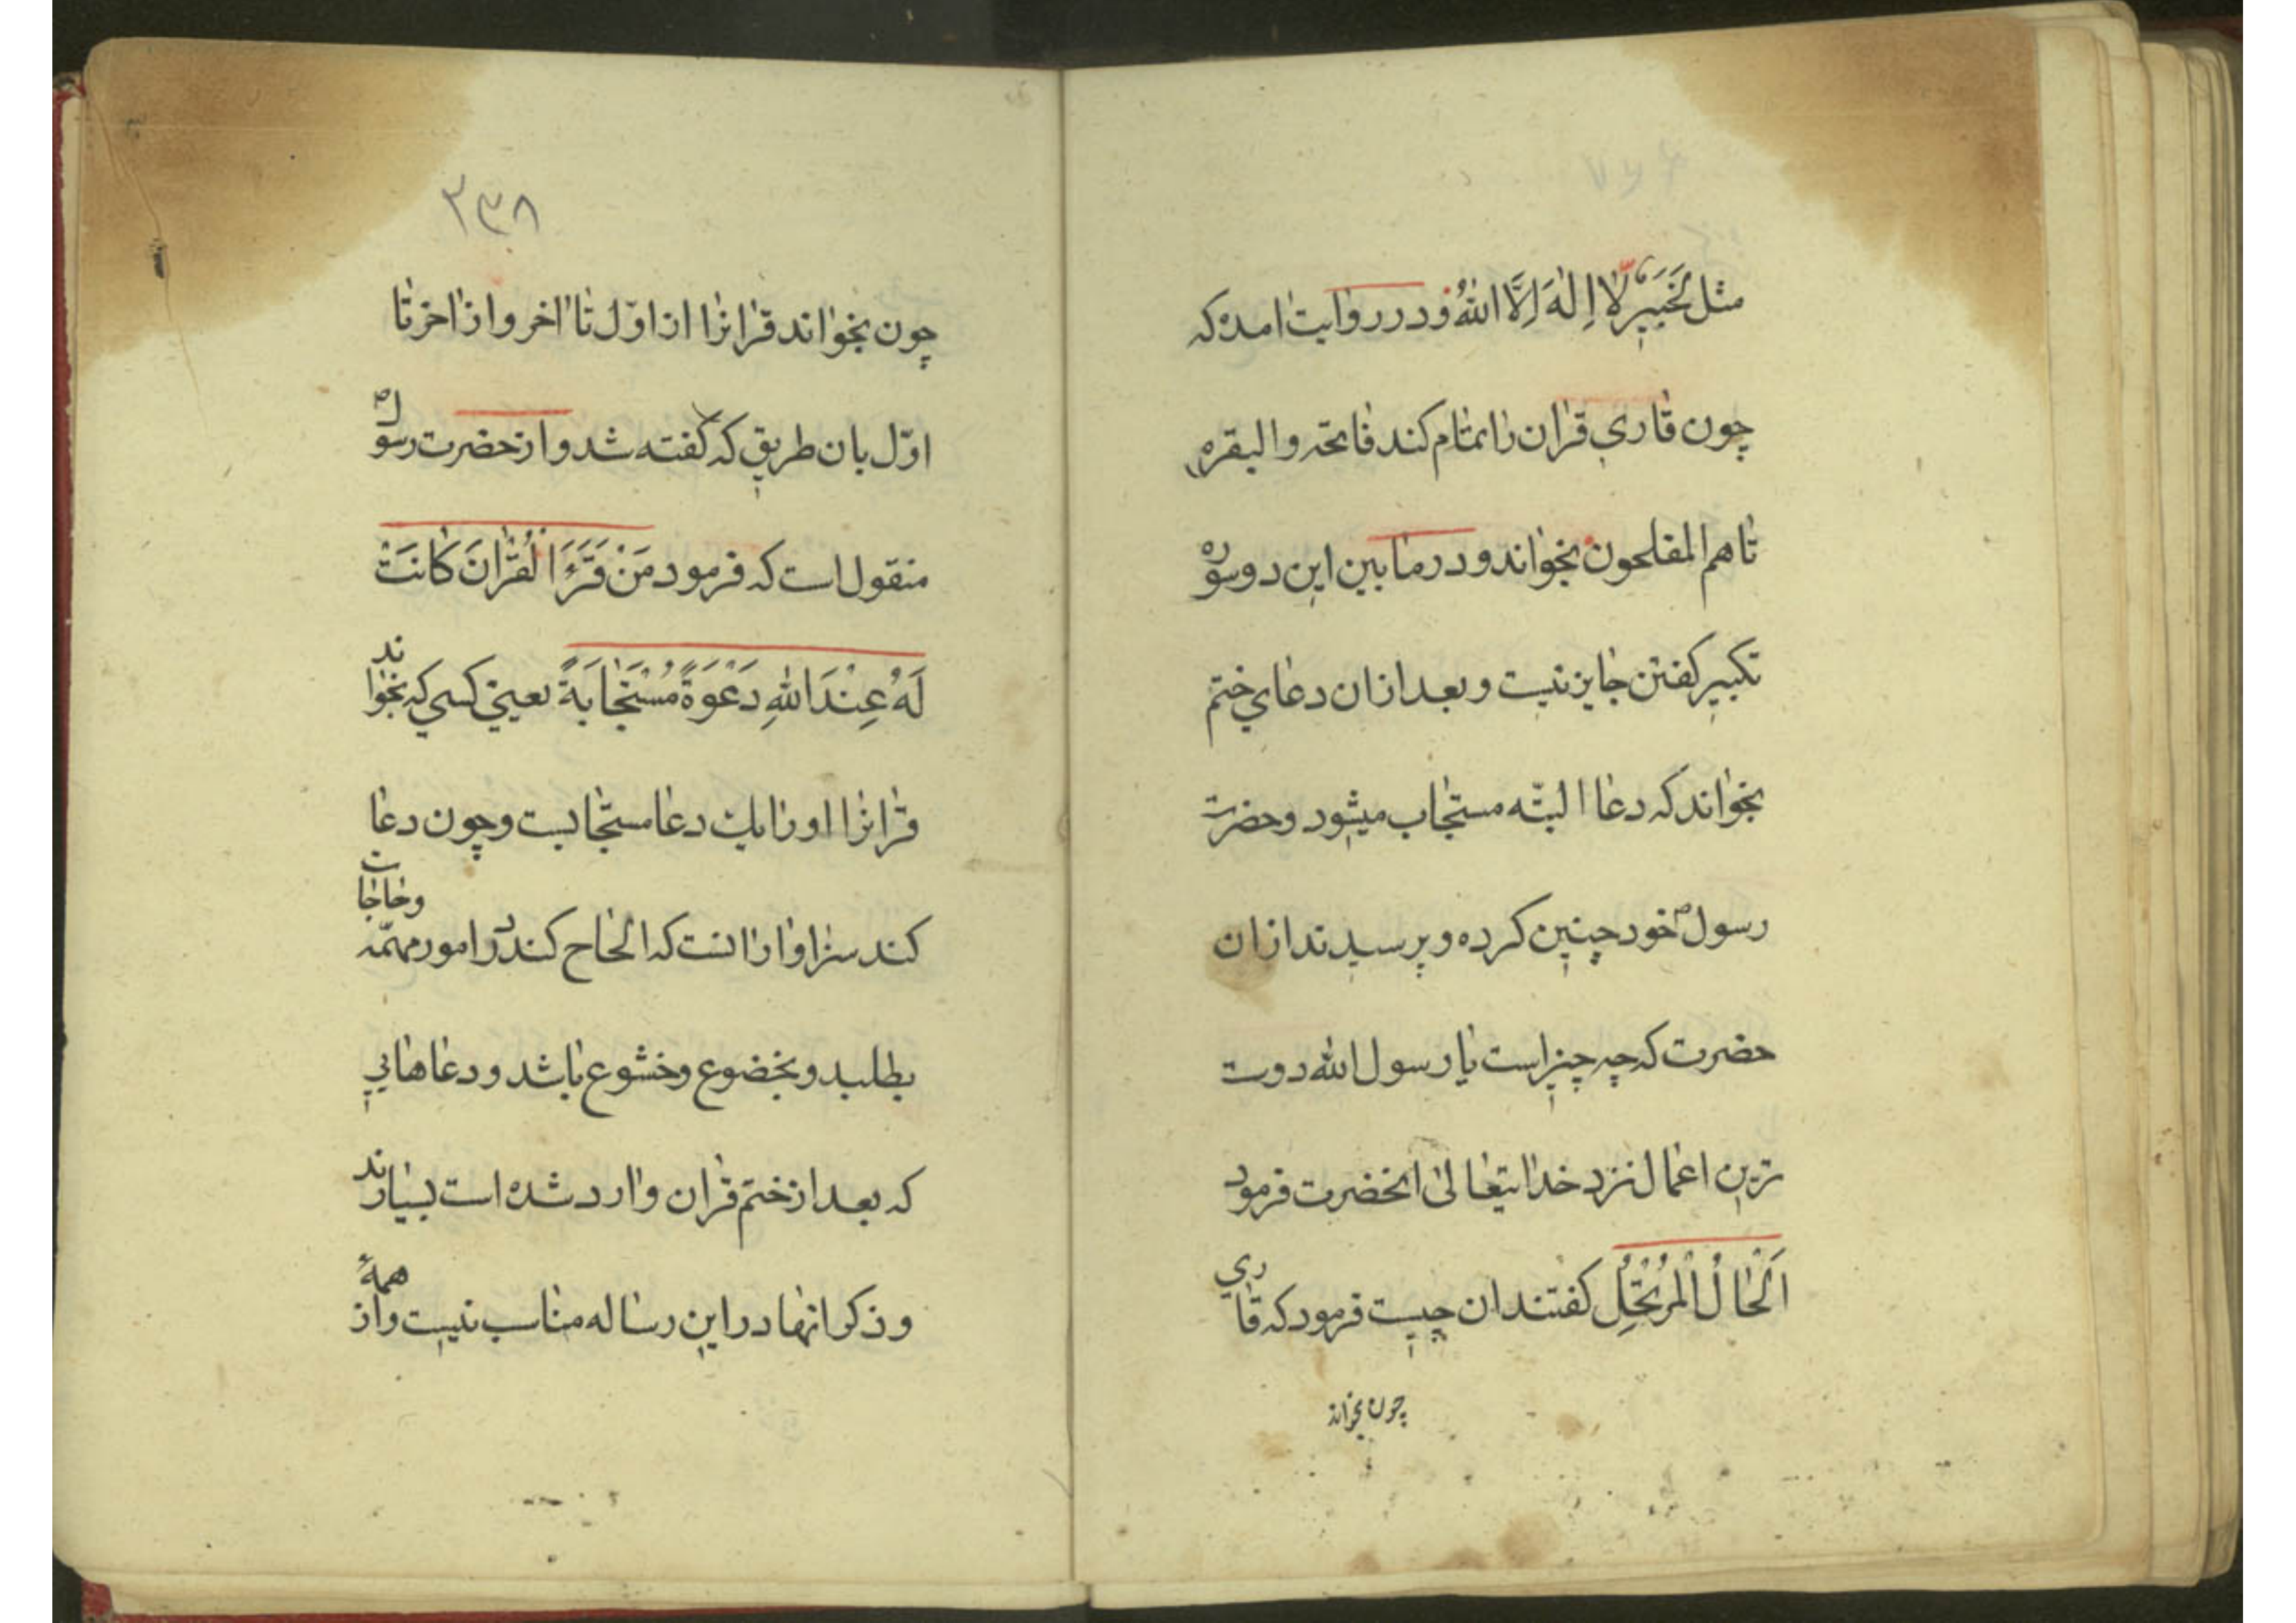 مثل لَخَبِیرٌ لَّا اِلٰهَ اِلَّا اللّٰهُ و در روایت امده که
چون قاری قران را تمام کند فاتحه و البقره
تا هم المفلحون بخواند و در مابین این دو سوره
تکبیر کفتن جایز نیست و بعد ازان دعای ختم
بخواند که دعا البتّه مستجاب میشود و حضرت
رسول ص خود چنین کرده و پرسیدند ازان
حضرت که چه چیز است یا رسول الله دوست
ترین اعمال نزد خدایتعالی انحضرت فرمود
اَلْحٰالُ الْمُرْتَحِلُ کفتند ان چیست فرمود که قاری
چون بخواند
۲۳۸
چون بخواند قرانرا از اوّل تا اخر و از اخر تا
اوّل بان طریق که کفته شد و از حضرت رسول ص
منقول است که فرمود مَنْ قَرَءَ الْقُرْانَ کٰانَتْ
لَهُ عِنْدَ اللّٰهِ دَعْوَةٌ مُسْتَجٰابَةٌ یعنی کسی که بخواند
قرانرا او را یك دعا مستجابست و چون دعا
کند سزاوار انست که الحاح کند در امور مهمّه وحاجات
بطلبد و بخضوع و خشوع باشد و دعاهایی
که بعد از ختم قران وارد شده است بسیارند
و ذکر انها در این رساله مناسب نیست و از همهٔ